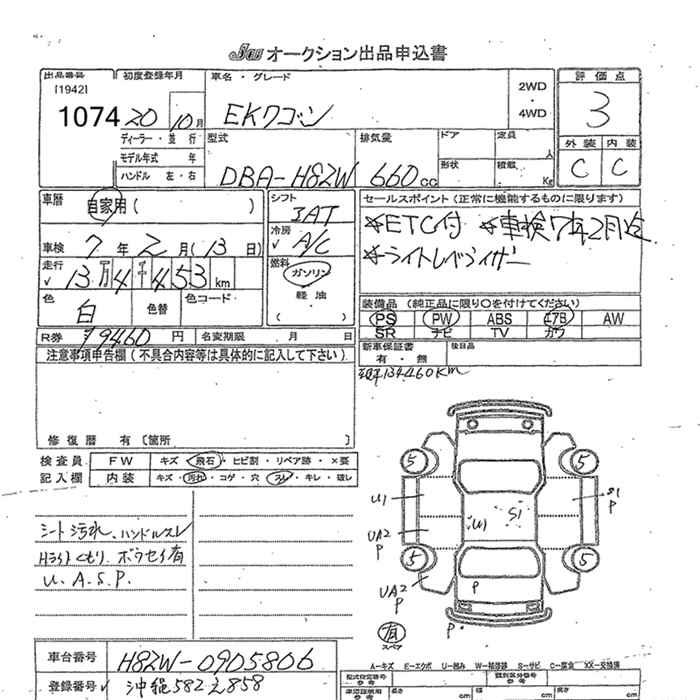 JU オークション出品申込書
出品番号 初度登録年月 車名・グレード 2WD ・ 4WD 評価点
[1942]
1074 20 10月 EKワゴン 3
ディーラー・並行 型式 排気量 ドア 定員 人 外装 内装
モデル年式 年 形状 積載 Kg C C
ハンドル 左・右 DBA-H82W 660cc
車歴 自家用 ( ) シフト 3AT セールスポイント (正常に機能するものに限ります)
※ETC付 ※車検7年2月迄
車検 7年 2月(13日) 冷房 A/C
※ライトレベライザー
走行 13万4千453km 燃料 ガソリン
軽油
( )
色 白 色替 色コード
装備品 (純正品に限り○を付けてください)
PS PW ABS エアB AW
SR ナビ TV カワ
R券 ¥9460円 名変期限 月 日
新車保証書 有・無 後日品
注意事項申告欄 (不具合内容等は具体的に記入して下さい)
現134460Km
修復歴 有 [箇所 ]
検査員 FW キズ・飛石・ヒビ割・リペア跡・×要
記入欄 内装 キズ・汚れ・コゲ・穴・スレ・キレ・破レ
5 5
U1 U1 S1 S1 P
シート汚れ、ハンドルスレ
UA2 P
Hライトくもり、ボウセイ有
5 5
U. A. S. P.
UA2 P P
有 スペア P
A-キズ E-エクボ U-凹み W-補修跡 S-サビ C-腐食 XX-交換済
車台番号 H82W-0905806
登録番号 沖縄582え858
長さ cm 幅 cm 高さ cm